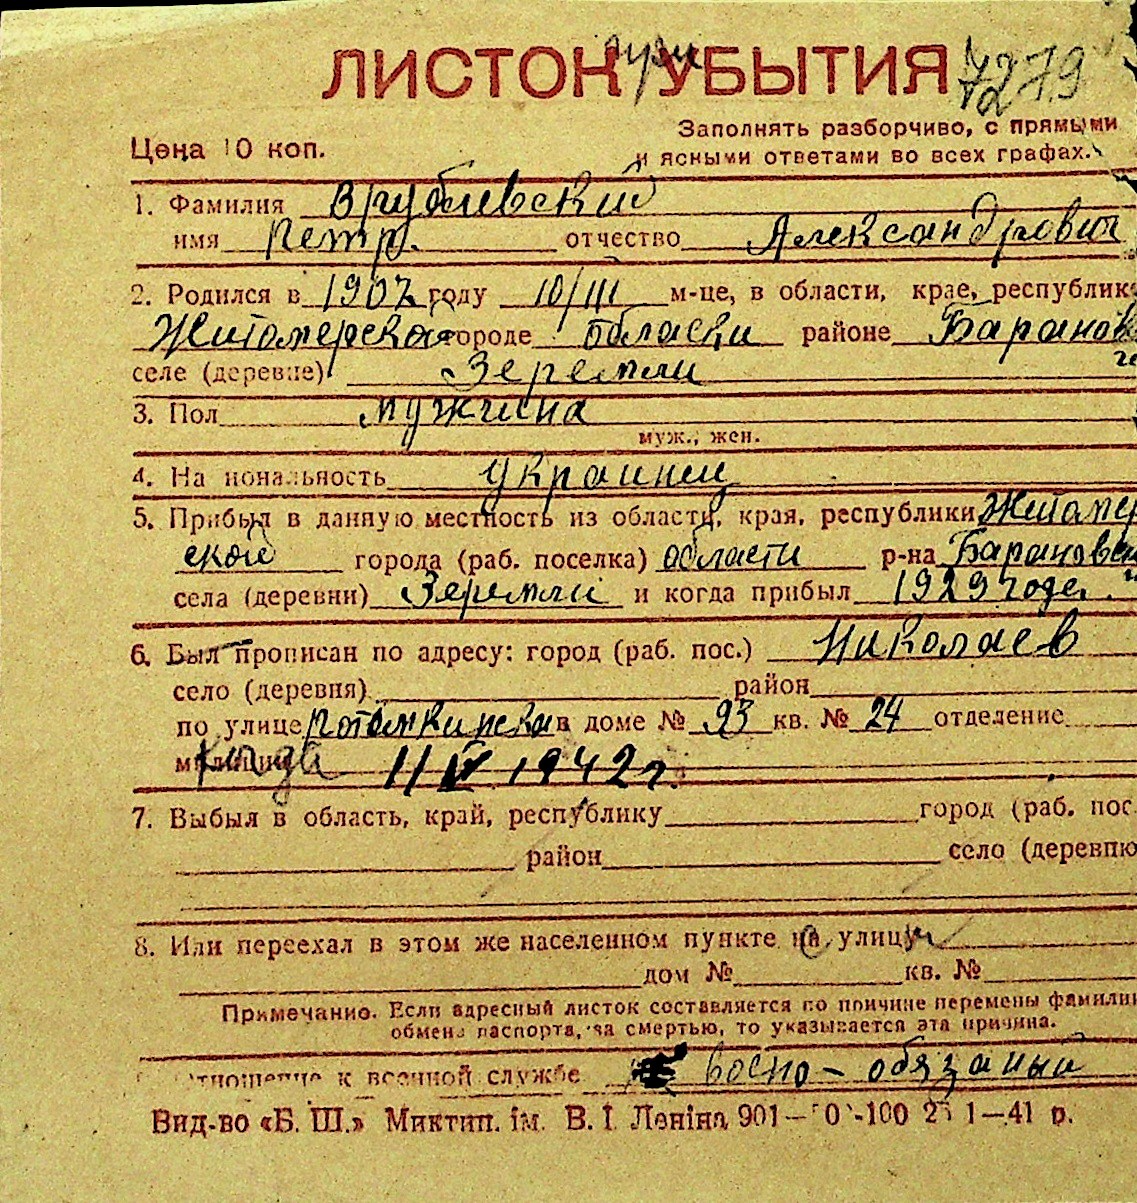 ЛИСТОК УБЫТИЯ 7279
Заполнять разборчиво, с прямыми
Цена 10 коп.
и ясными ответами во всех графах.
1. Фамилия Врублевский
имя Петр. отчество Александрович
2. Родился в 1907 году 10/III м-це, в области, крае, республик
Житомерской городе области районе Баранов
селе (деревне) Зеремли
3. Пол мужчина
муж., жен.
4. На иональность украинец
5. Прибыл в данную местность из области, края, республики Житомер
ской города (раб. поселка) области р-на Барановск
села (деревни) Зеремли и когда прибыл 1929 годе.
6. Был прописан по адресу: город (раб. пос.) Николаев
село (деревня) район
по улице потомкинска в доме № 93 кв. № 24 отделение
милиции когда 11 IV 1942 г.
7. Выбыл в область, край, республику город (раб. пос
район село (деревню
8. Или переехал в этом же населенном пункте на улицу
дом № кв. №
Примечание. Если адресный листок составляется по причине перемены фамилии
обмена паспорта, за смертью, то указывается эта причина.
тношение к военной службе воено-обязаный
Вид-во «Б. Ш.» Миктип. ім. В. І. Леніна 901— 0 -100 25 1—41 р.